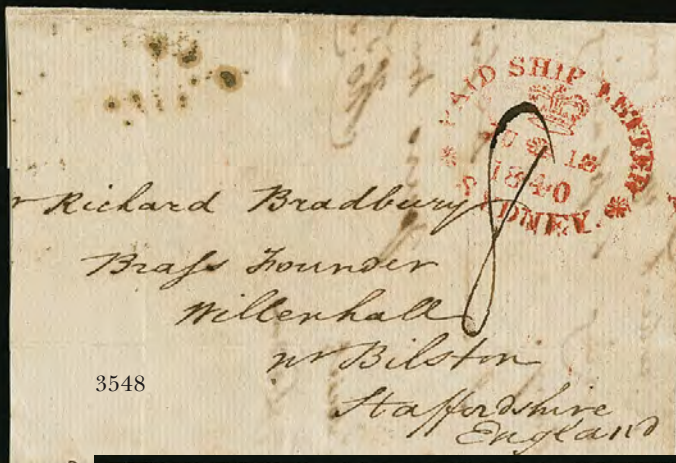 PAID SHIP LETTER
18
1840
SYDNEY
8
Richard Bradbury
Brass Founder
Willenhall
nr Bilston
Staffordshire
England
3548